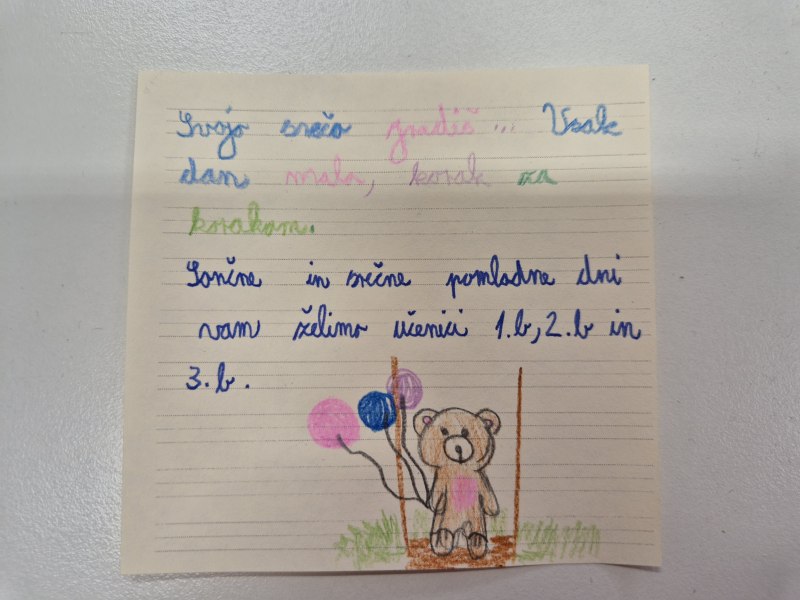 Svojo srečo gradiš... Vsak
dan malo, korak za
korakom.
Sončne in srečne pomladne dni
vam želimo učenici 1.b, 2.b in
3.b.